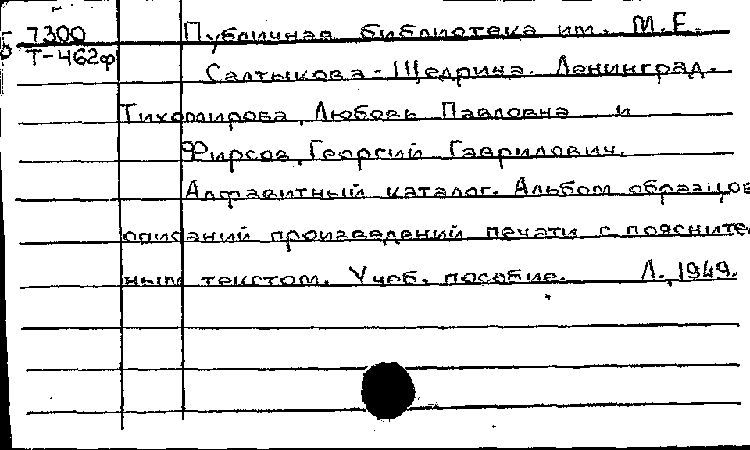 Б 7300
Т-462ф
Публичная библиотека им. М.Е.
Салтыкова-Щедрина. Ленинград.
Тихомирова, Любовь Павловна и
Фирсов, Георгий Гаврилович.
Алфавитный каталог. Альбом образцов
описаний произведений печати с поясните
ным текстом. Учеб. пособие. Л., 1949.